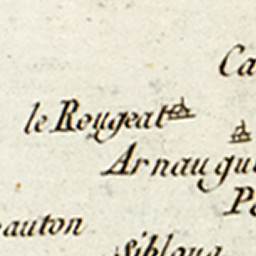 Ca
le Rougeat
Arnaugui
Pe
auton
Siblona